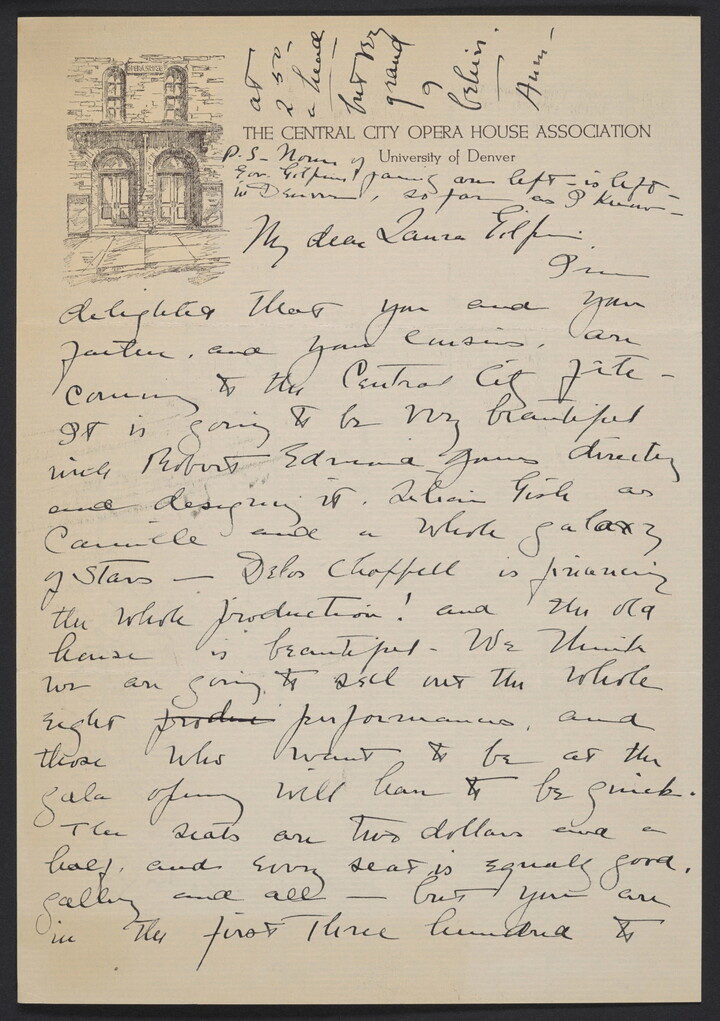 at
2.50 -
a head
but very
grand
I
believe.
Ann -
THE CENTRAL CITY OPERA HOUSE ASSOCIATION
University of Denver
P.S - None of
Gov. Gilpin's family are left - is left -
in Denver, so far as I know -
My dear Laura Gilpin
I'm
delighted that you and your
father, and your cousins, are
coming to the Central City fête -
It is going to be very beautiful
with Robert Edmond Jones directing
and designing it. Lilian Gish as
Camille and a whole galaxy
of stars - Delos Chappell is financing
the whole production! and the old
house is beautiful - We think
we are going to sell out the whole
eight produc performances, and
those who want to be at the
gala opening will have to be quick.
The seats are two dollars and a
half, and every seat is equally good,
gallery and all - but you are
in the first three hundred to